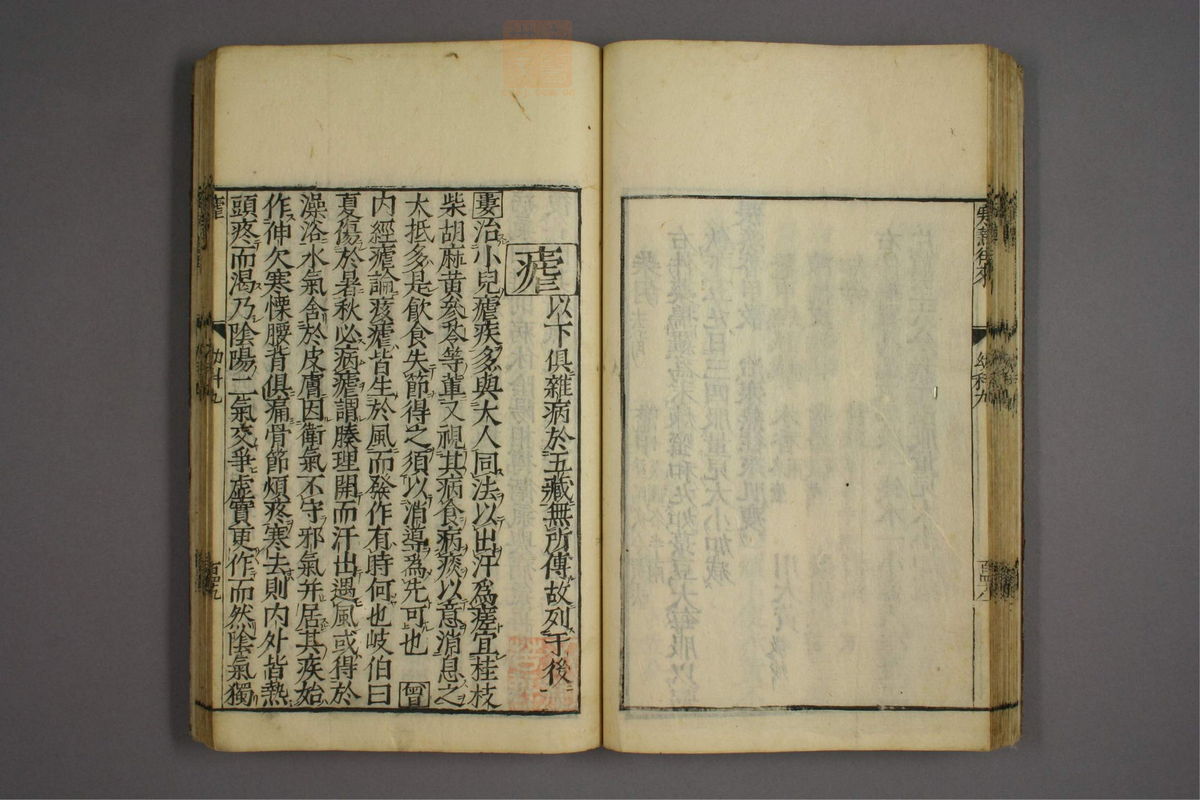 寒熱往來
幼科九
瘧 以下俱雜病於五藏無所傳故列于後
婁治小兒瘧疾多與大人同法以出汗爲瘥宜桂枝
柴胡麻黄參苓等輩又視其病食病痰以意消息之
大抵多是飮食失節得之須以消導爲先可也 曾
内經瘧論痎瘧皆生於風而發作有時何也岐伯曰
夏傷於暑秋必病瘧謂腠理開而汗出遇風或得於
澡浴水氣舎於皮膚因衛氣不守邪氣并居其疾始
作伸欠寒慄腰背俱痛骨節煩疼寒去則内外皆熱
頭疼而渴乃陰陽二氣交爭虚實更作而然陰氣獨
瘧
幼科九